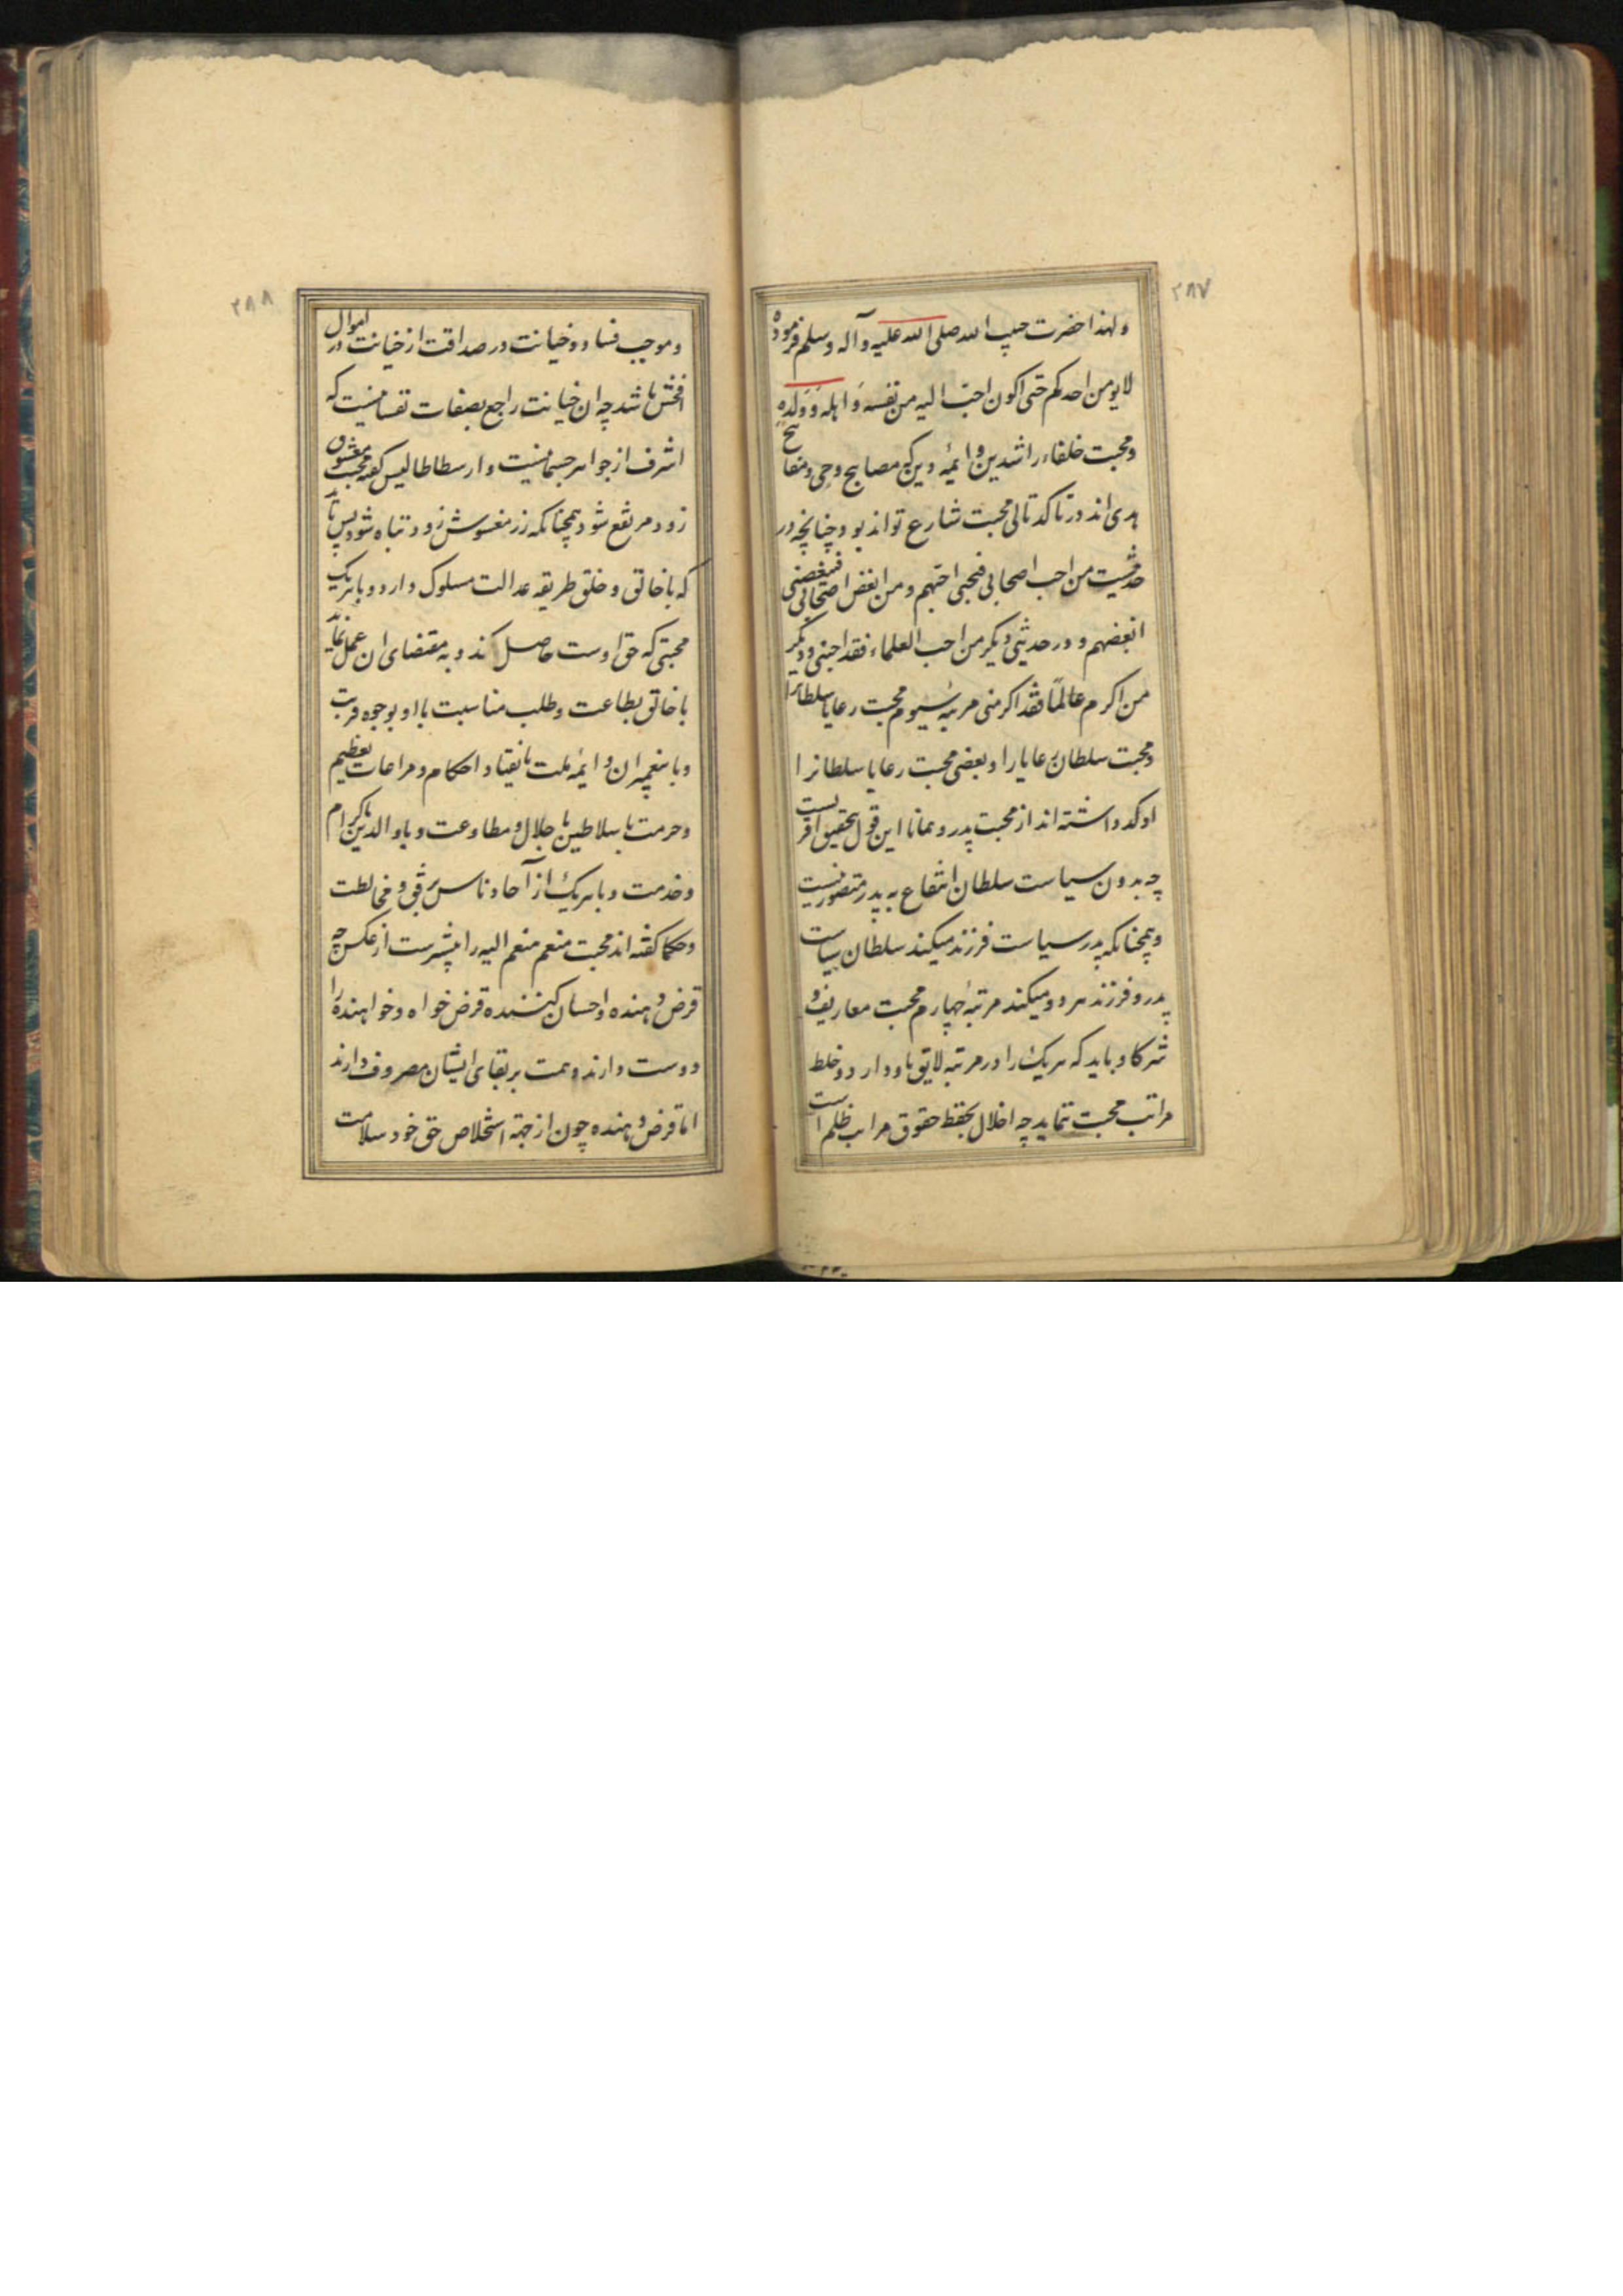 ۲۸۷
ولهذا حضرت حبیب الله صلی الله علیه وآله وسلم فرموده
لایومن احدکم حتی اکون احب الیه من نفسه و اهله و ولده
ومحبت خلفاء راشدین و ایمه دین که مصابیح وحی و مفاتیح
هدی اند در تاکد تالی محبت شارع تواند بود چنانچه در
حدیثست من احب اصحابی فبحبی احبهم و من ابغض اصحابی فببغضی
ابغضهم و در حدیثی دیکر من احب العلماء فقد احبنی و دیکر
من اکرم عالمًا فقد اکرمنی مرتبهٔ سیوم محبت رعایا سلطانرا
ومحبت سلطان رعایا را و بعضی محبت رعایا سلطانرا
اوکد داشته اند از محبت پدر و همانا این قول بتحقیق اقربست
چه بدون سیاست سلطان انتفاع به پدر متصور نیست
وهمچنانکه پدر سیاست فرزند میکند سلطان سیاست
پدر و فرزند هر دو میکند مرتبهٔ چهارم محبت معارف و
شرکا و باید که هریک را در مرتبه لایق باو دارد و خلط
مراتب محبت ننماید چه اخلال بحفظ حقوق مراتب ظلم است
۲۸۸
وموجب فساد و خیانت در صداقت از خیانت در اموال
افحش باشد چه ان خیانت راجع بصفات نفسانیست که
اشرف از جواهر جسمانیست و ارسطاطالیس کفته محبت مغشوش
زود مرتفع شود همچنانکه زر مغشوش زود تباه شود پس باید
که با خالق و خلق طریقه عدالت مسلوک دارد و با هریک
محبتی که حق اوست حاصل کند و به مقتضای ان عمل نماید
با خالق بطاعت و طلب مناسبت با او بوجوه قربت
وبا پیغمبران و ائمه ملت بانقیاد احکام و مراعات تعظیم
وحرمت با سلاطین باجلال و مطاوعت و با والدین باکرام
وخدمت و با هریک از آحاد ناس برفق و مخالطت
وحکما کفته اند محبت منعم منعم الیه را بیشترست از عکس چه
قرض دهنده و احسان کننده قرض خواه و خواهنده را
دوست دارند و همت بر بقای ایشان مصروف دارند
اما قرض دهنده چون از جهة استخلاص حق خود سلامت